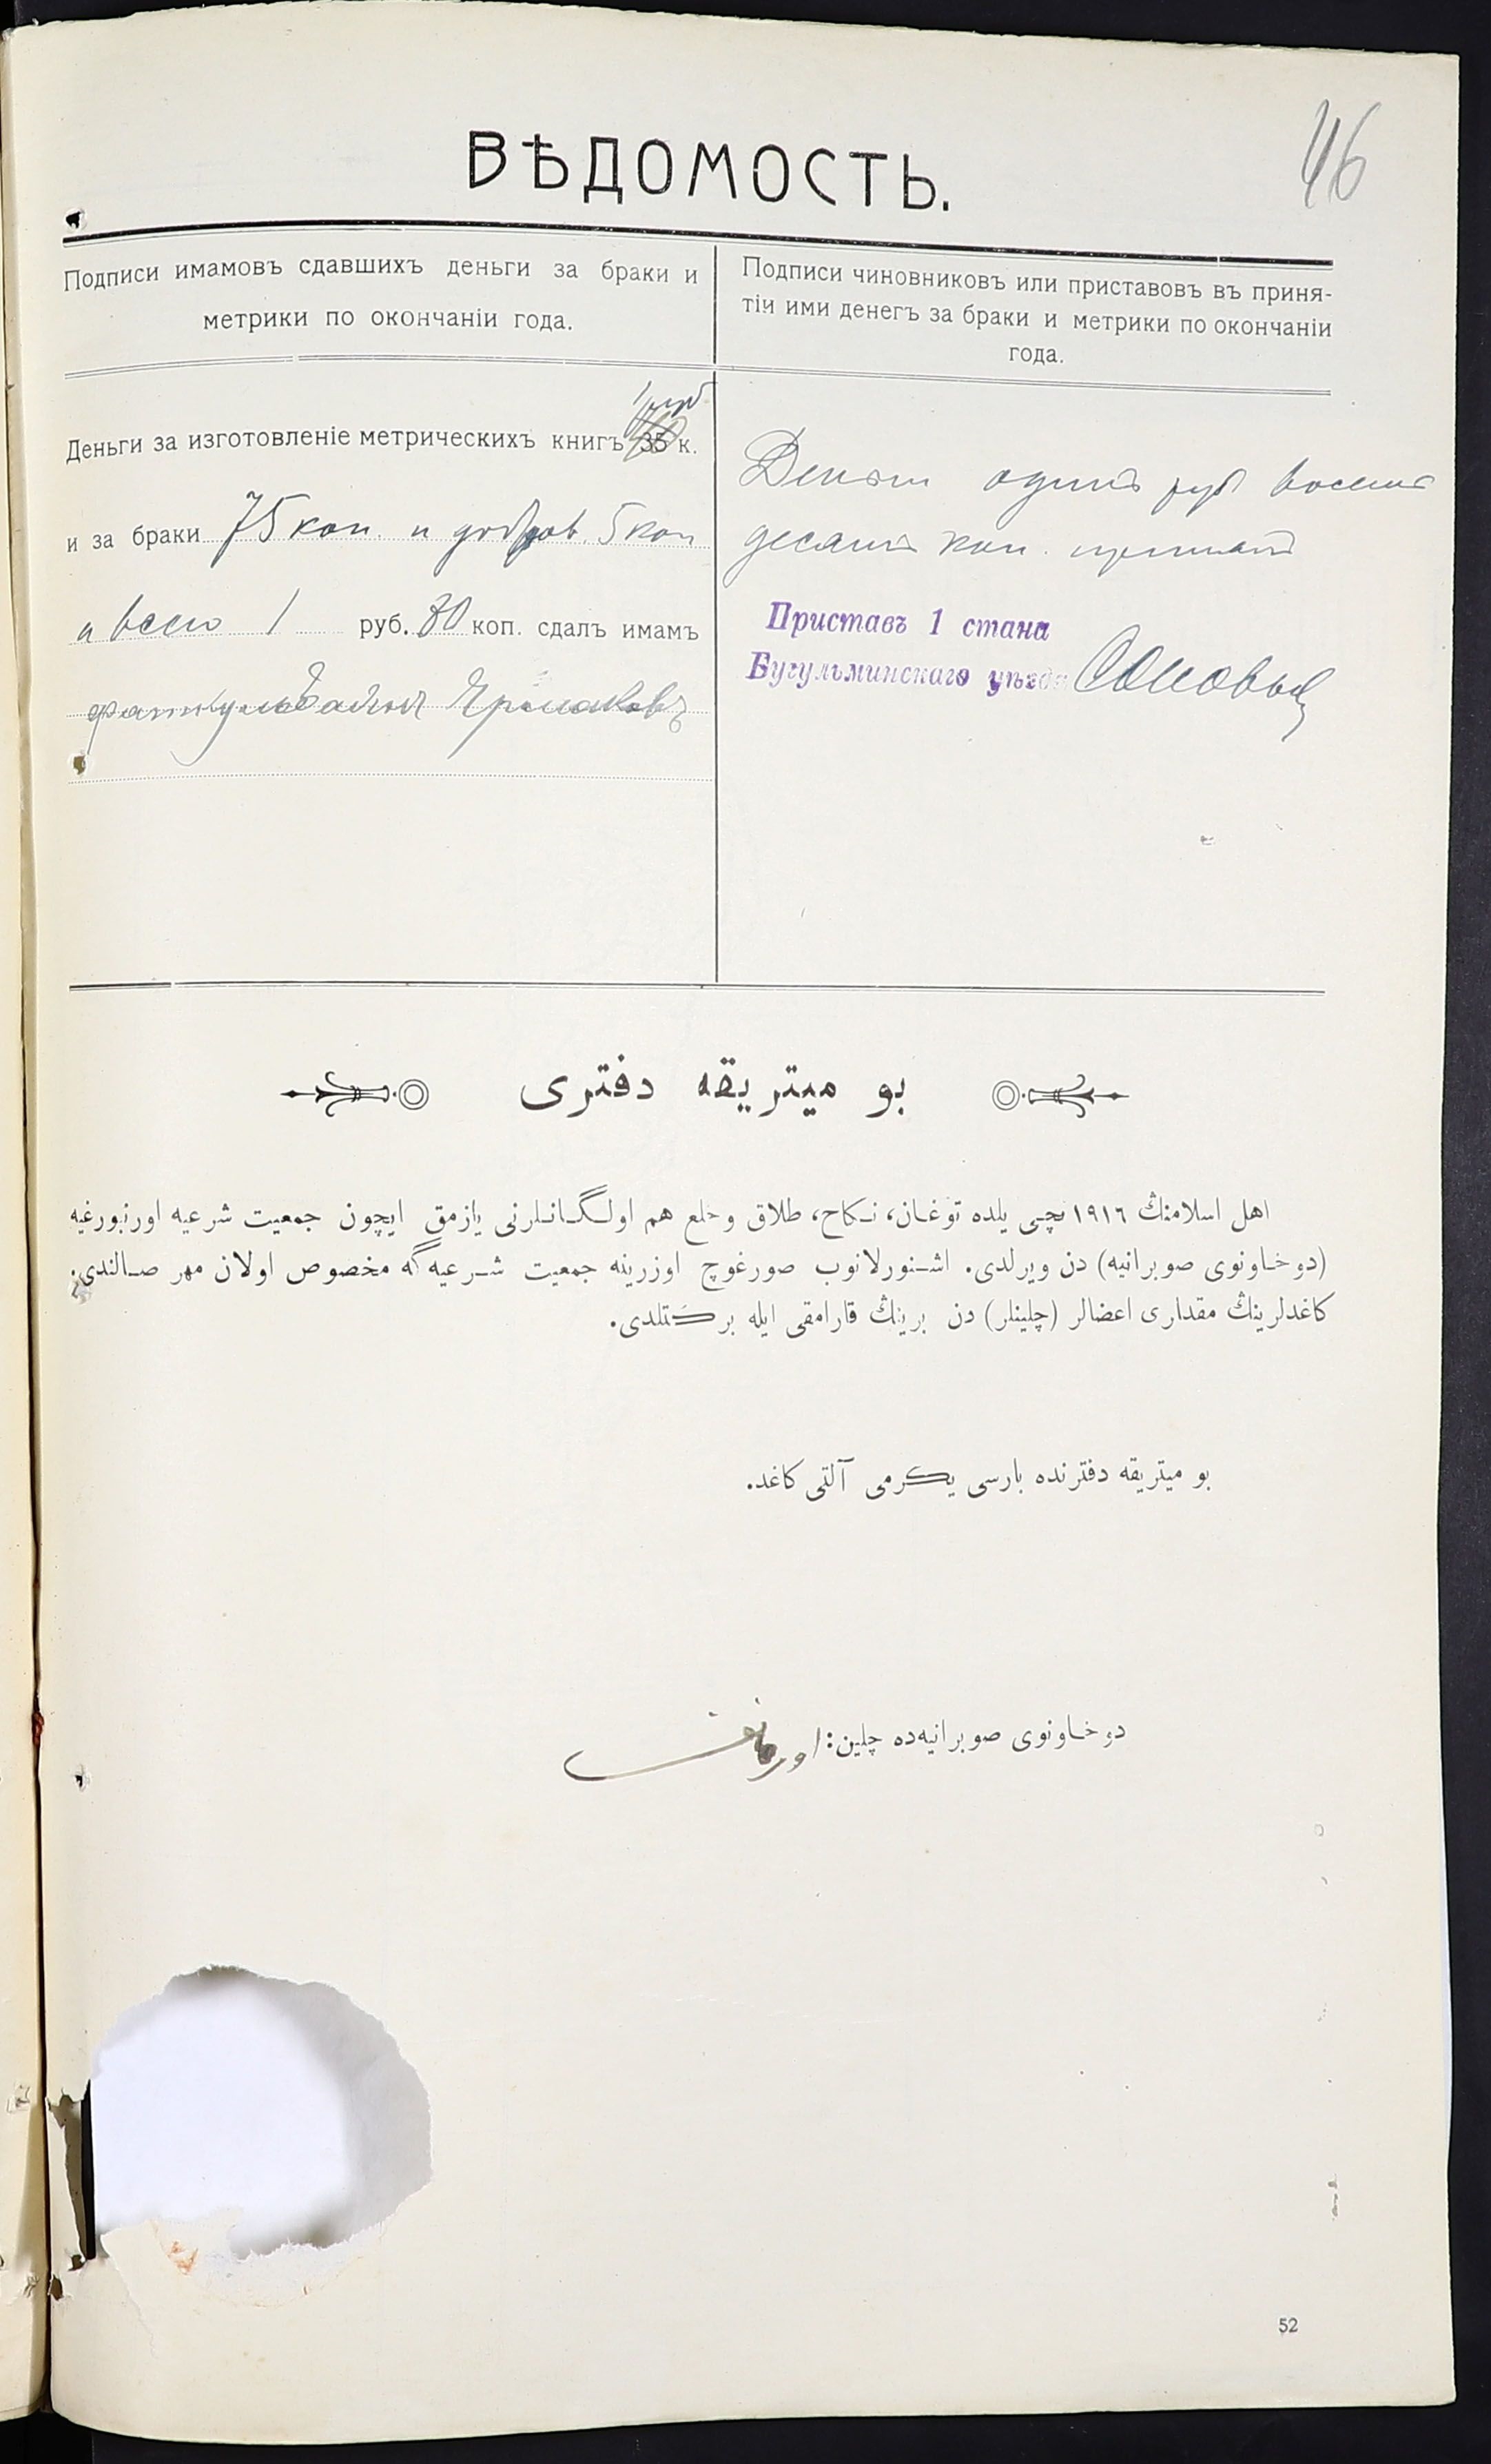 46
ВѢДОМОСТЬ.
Подписи имамовъ сдавшихъ деньги за браки и
метрики по окончаніи года.
Подписи чиновниковъ или приставовъ въ приня-
тіи ими денегъ за браки и метрики по окончаніи
года.
1 руб
Деньги за изготовленіе метрическихъ книгъ 35 к.
и за браки 75 коп. и 5 коп
и всего 1 руб. 80 коп. сдалъ имамъ
Деньги одинъ руб восемь
десятъ коп. принялъ
Приставъ 1 стана
Бугульминскаго уѣзда
بو ميتريقه دفترى
اهل اسلامنڭ ١٩١٦ نچـى يلده توغـان، نـكاح، طلاق وخلع هم اولـگـانـلرنى يازمق ايچون جمعيت شرعيه اورنبورغيه
(دوخـاونوى صوبرانيه) دن ويرلدى. اشـنورلانوب صورغوچ اوزرينه جمعيت شـرعيه گه مخصوص اولان مهر صـالندى.
كاغدلرينڭ مقدارى اعضالر (چلينلر) دن برينڭ قارامقى ايله بركتلدى.
بو ميتريقه دفترنده بارسى يكرمى آلتى كاغد.
دوخـاونوى صوبرانيه‌ده چلين:
52